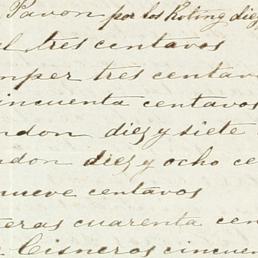 Pavon por los Koting diez
tres centavos
tres centavo
cincuenta centavos
don diez y siete
don diez y ocho cen
nueve centavos
teras cuarenta cen
Cisneros cincuen